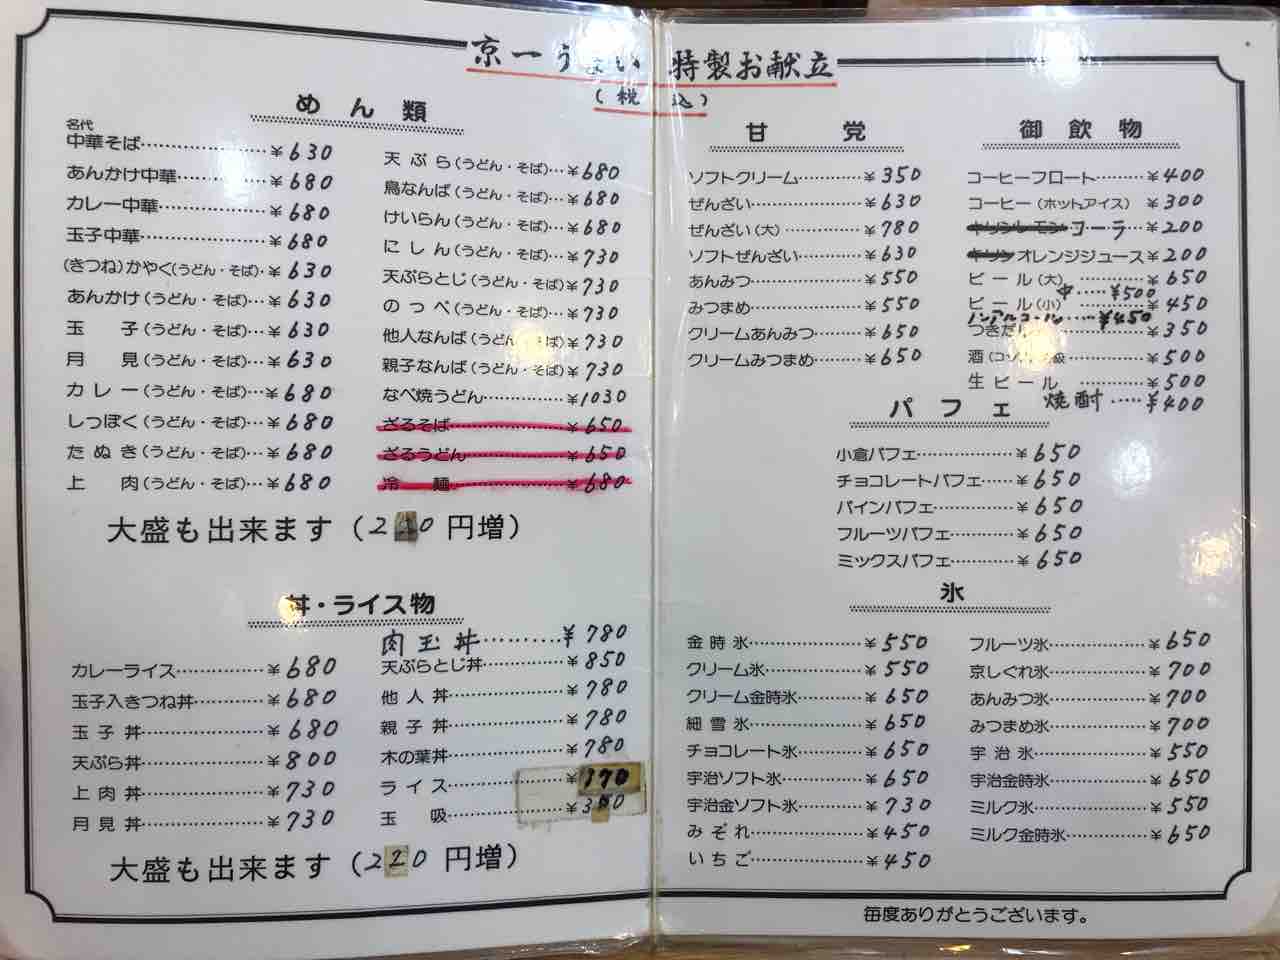 京一うまい 特製お献立
(税込)
めん類
名代
中華そば……………¥630
あんかけ中華…………¥680
カレー中華……………¥680
玉子中華………………¥680
(きつね)かやく(うどん・そば)…¥630
あんかけ(うどん・そば)…¥630
玉子(うどん・そば)…¥630
月見(うどん・そば)…¥630
カレー(うどん・そば)…¥680
しっぽく(うどん・そば)…¥680
たぬき(うどん・そば)…¥680
上肉(うどん・そば)…¥680
天ぷら(うどん・そば)…¥680
鳥なんば(うどん・そば)…¥680
けいらん(うどん・そば)…¥680
にしん(うどん・そば)…¥730
天ぷらとじ(うどん・そば)…¥730
のっぺ(うどん・そば)…¥730
他人なんば(うどん・そば)¥730
親子なんば(うどん・そば)…¥730
なべ焼うどん……………¥1030
ざるそば…………………¥650
ざるうどん………………¥650
冷麺………………………¥680
大盛も出来ます(220円増)
丼・ライス物
カレーライス……………¥680
玉子入きつね丼…………¥680
玉子丼……………………¥680
天ぷら丼…………………¥800
上肉丼……………………¥730
月見丼……………………¥730
肉玉丼………¥780
天ぷらとじ丼……………¥850
他人丼……………………¥780
親子丼……………………¥780
木の葉丼…………………¥780
ライス……………………¥370
玉吸………………………¥
大盛も出来ます(220円増)
甘党
ソフトクリーム…………¥350
ぜんざい…………………¥630
ぜんざい(大)……………¥780
ソフトぜんざい…………¥630
あんみつ…………………¥550
みつまめ…………………¥550
クリームあんみつ………¥650
クリームみつまめ………¥650
御飲物
コーヒーフロート………¥400
コーヒー(ホット、アイス)¥300
キリンレモン コーラ…¥200
キリン オレンジジュース¥200
ビール(大)………………¥650
中……¥500
ビール(小)………………¥450
ノンアルコール……¥450
¥350
酒 ¥500
生ビール…………¥500
焼酎……¥400
パフェ
小倉パフェ………………¥650
チョコレートパフェ……¥650
パインパフェ……………¥650
フルーツパフェ…………¥650
ミックスパフェ…………¥650
氷
金時氷……………………¥550
クリーム氷………………¥550
クリーム金時氷…………¥650
細雪氷……………………¥650
チョコレート氷…………¥650
宇治ソフト氷……………¥650
宇治金ソフト氷…………¥730
みぞれ……………………¥450
いちご……………………¥450
フルーツ氷………………¥650
京しぐれ氷………………¥700
あんみつ氷………………¥700
みつまめ氷………………¥700
宇治氷……………………¥550
宇治金時氷………………¥650
ミルク氷…………………¥550
ミルク金時氷……………¥650
毎度ありがとうございます。